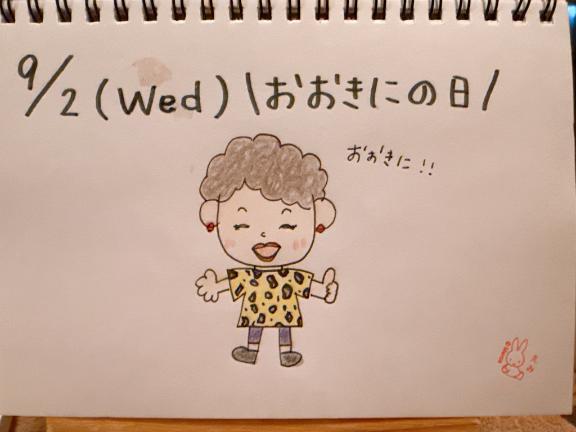 9/2(Wed)\おおきにの日/
おおきに!!